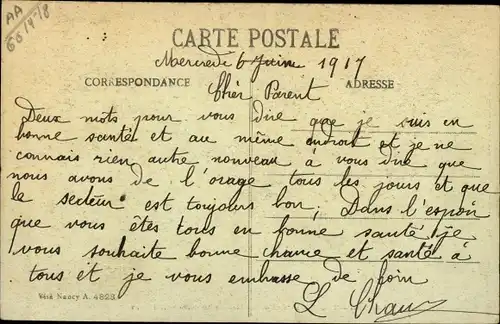 AA
CARTE POSTALE
Mercredi 6 Juin 1917
CORRESPONDANCE ADRESSE
Chèr Parent
Deux mots pour vous dire que je suis en
bonne santé et au même endroit et je ne
connais rien autre nouveau à vous dire que
nous avons de l'orage tous les jours et que
le secteur est toujours bon; Dans l'espoir
que vous êtes tous en bonne santé je
vous souhaite bonne chance et santé à
tous et je vous embrasse de loin
Visé Nancy A. 4823
L